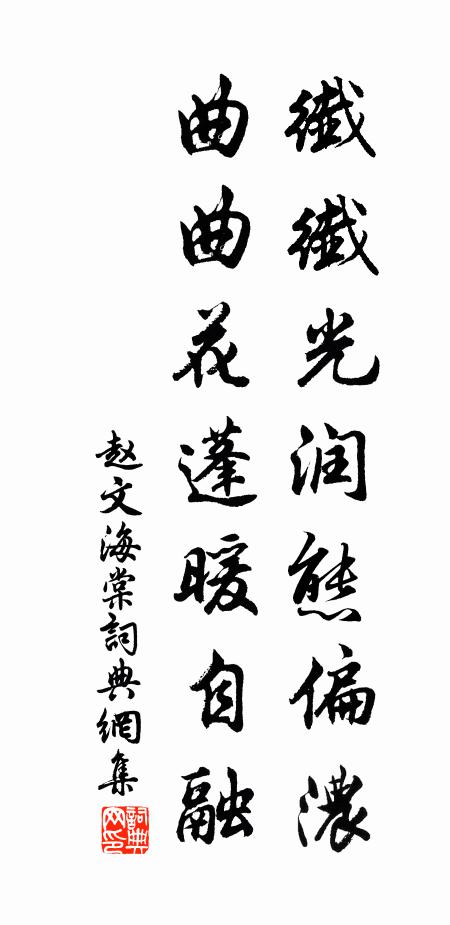 纖纖光润態偏濃
曲曲花蓬暖自融
赵文海棠詞典網集
詞典网印